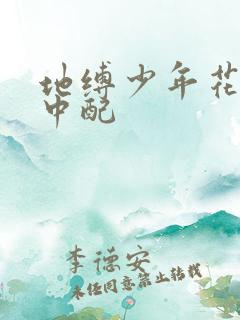 地缚少年花
中配
李德安
未经同意禁止转载